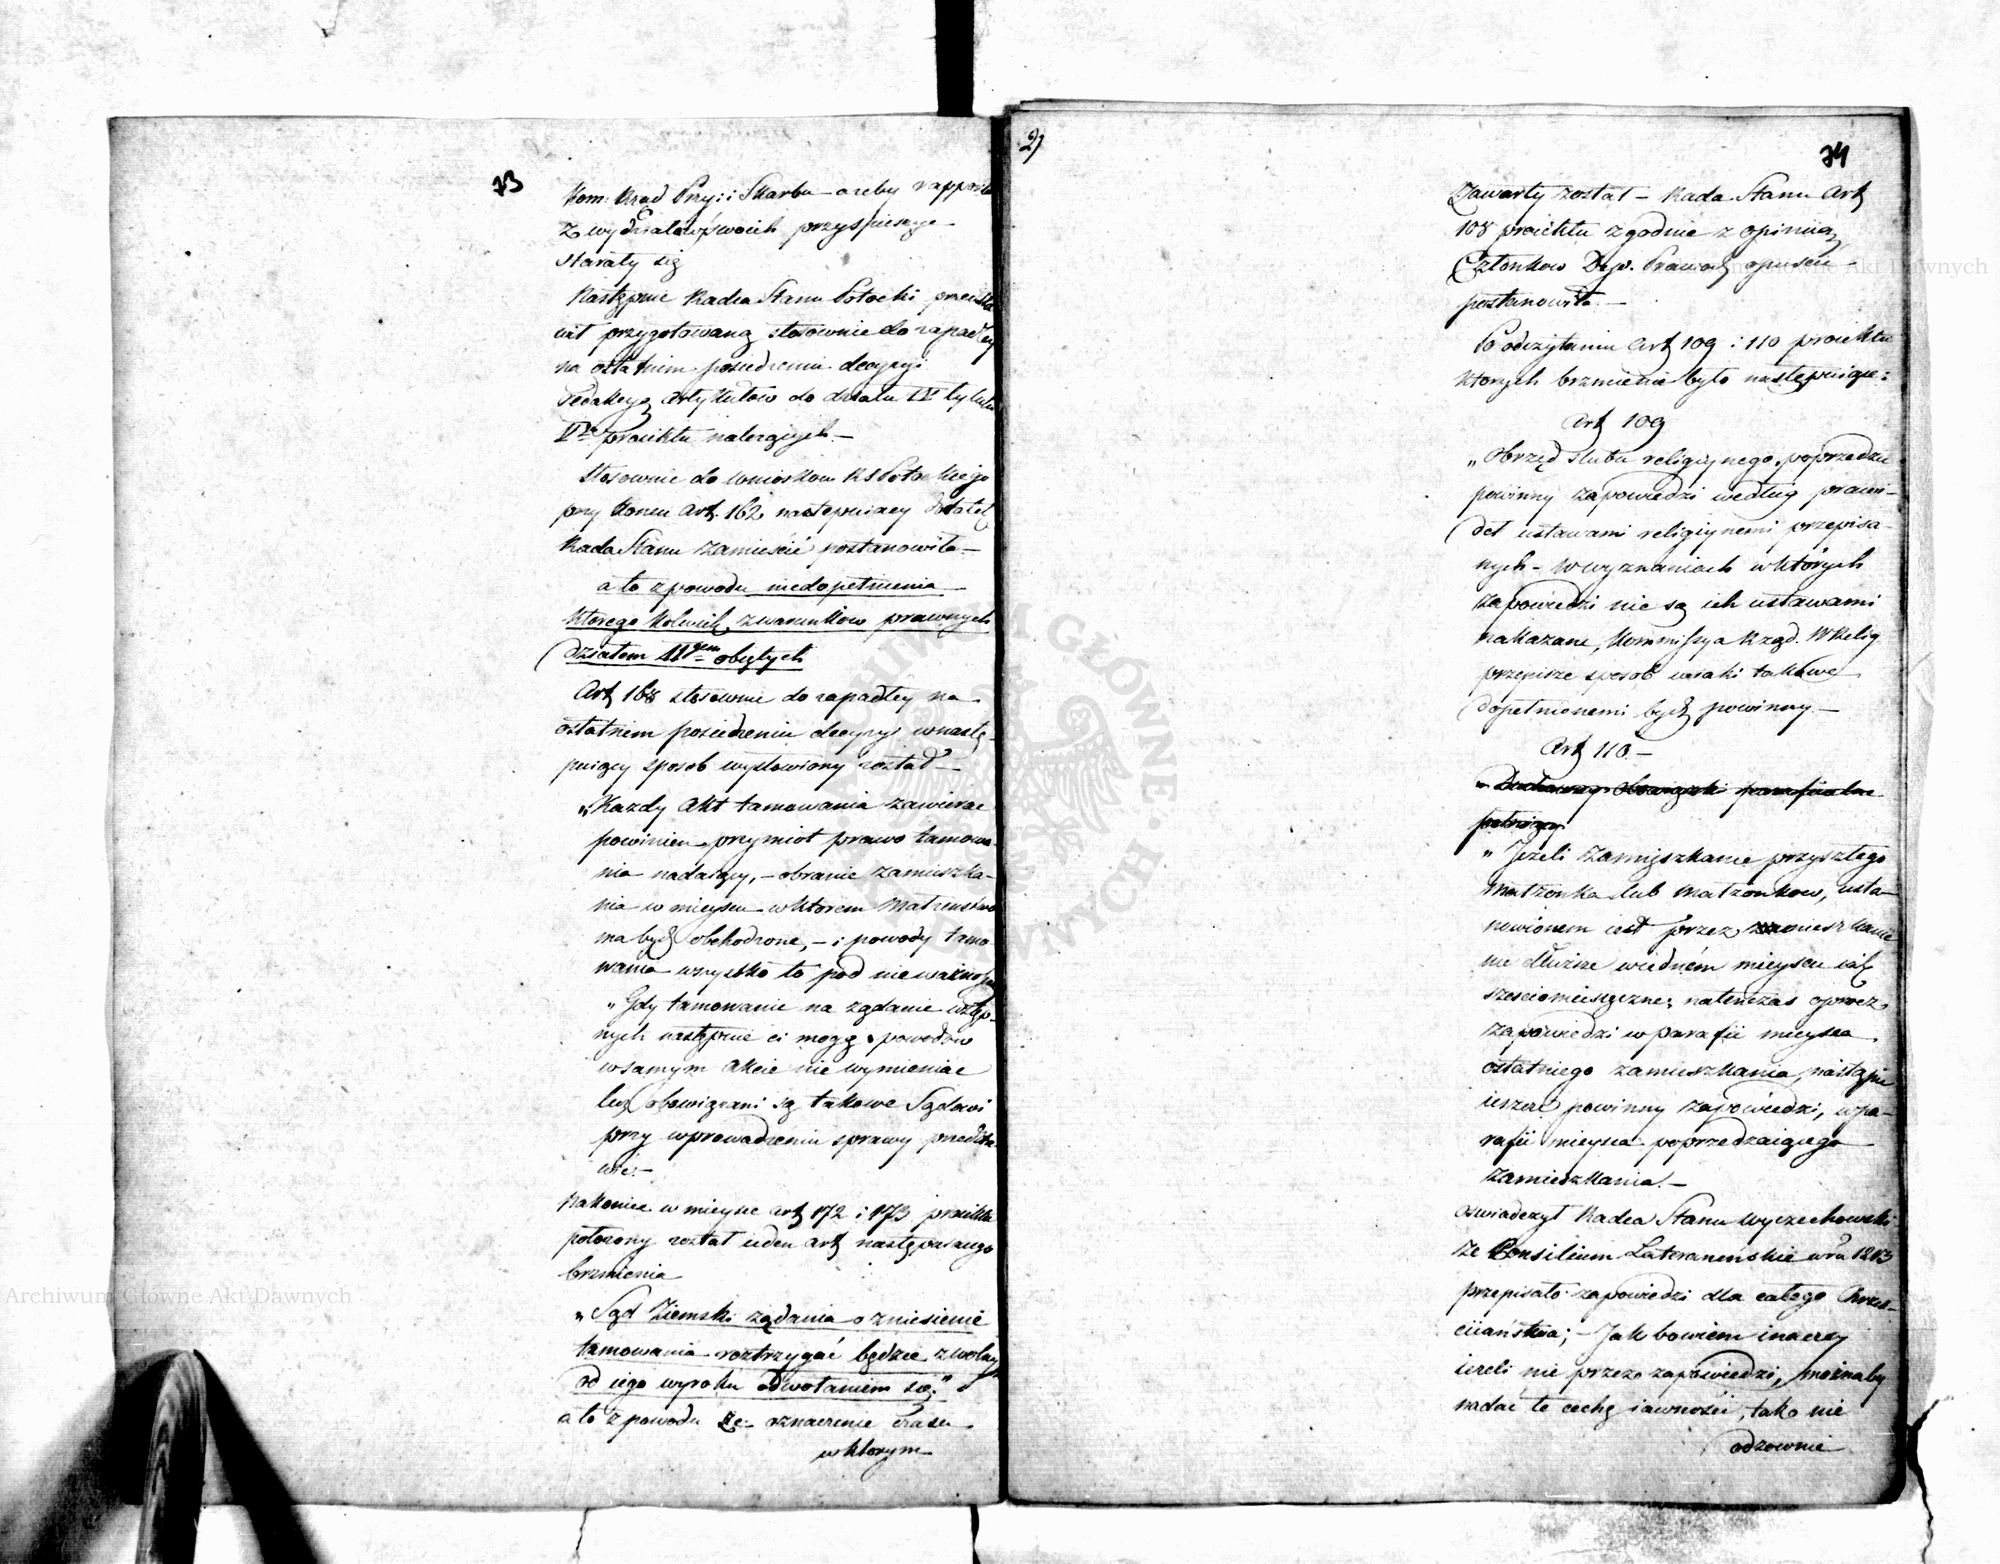 73
Kom: Rząd Przy: i Skarbu – ażeby rapporta
z wydziałów swoich przyspieszyc
starały się
Następnie Radca Stanu Potocki przedsta
wił przygotowaną stosownie do zapadłey
na ostatnim posiedzeniu decyzyi
Redakcyą Artykułów do działu IV tytułu
Vgo proiektu należących. –
Stosownie do wniosków RS Potockiego
przy końcu Art. 162 następuiący dodatek
Rada Stanu zamieścić postanowiła –
a to z powodu niedopełnienia
któregokolwiek z warunków prawnych
działem IIgim obiętych
Art 168 stosownie do zapadłey na
ostatniem posiedzeniu decyzyi w nastę-
puiący sposób wysłowiony został –
„Każdy Akt tamowania zawierać
powinien przymiot prawo tamowa-
nia nadaiący, – obranie zamieszka-
nia w mieyscu w którem Małżeństwo
ma być obchodzone, – i powody tamo-
wania wszystko to pod nieważnością
„Gdy tamowanie na żądanie wstęp-
nych następuie ci mogą powodów
w samym Akcie nie wymieniać
lecz obowiązani są takowe Sądowi
przy wprowadzeniu sprawy przedsta
wić. –
Nakoniec w mieysce art 172 i 173 proiektu
położony został ieden art następuiącego
brzmienia
„Sąd Ziemski żądania o zniesienie
tamowania roztrzygać będzie z wolnym
od iego wyroku odwołaniem się."
a to z powodu że oznaczenie czasu
w którym
2)
74
Zawarty został – Rada Stanu Art
108 proiektu zgodnie z opiniią
Członków Dep. Prawod. opuścić
postanowiła. –
Po odczytaniu Art 109 i 110 proiektu
których brzmienie było następuiące:
Art 109
„Obrzęd ślubu religiynego poprzedzić
powinny zapowiedzi według prawi-
deł ustawami religiynemi przepisa-
nych – w wyznaniach w których
zapowiedzi nie są ich ustawami
nakazane, Kommissya Rząd. W Relig
przepisze sposób w iaki takowe
dopełnionemi być powinny. –
Art 110. –
„Duchowny obowiązki parafialne
pełniący
„Jeżeli zamieszkanie przyszłego
Małżonka lub Małżonków, usta-
nowionem iest przez zamieszkanie
nie dłuższe w iedném mieyscu iak
sześciomiesięczne, natenczas oprócz
zapowiedzi w parafii mieysca
ostatniego zamieszkania, nastąpić
ieszcze powinny zapowiedzi, w pa-
rafii mieysca poprzedzaiącego
zamieszkania. –
oświadczył Radca Stanu Wyczechowski
że Consilium Lateraneńskie w ru 1213
przepisało zapowiedzi dla całego Chrześ-
ciiaństwa; – Jak bowiem inaczey
ieżeli nie przez zapowiedzi, możnaby
nadać tę cechę iawności, tako nie
odzownie
Archiwum Główne Akt Dawnych